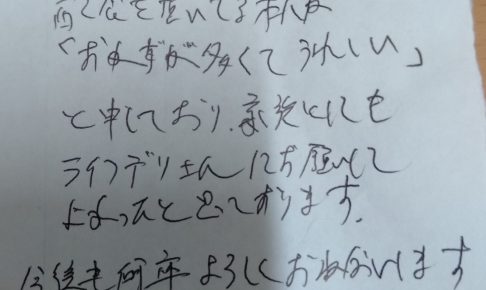 を頂いてる本人が
「おかずが多くてうれしい」
と申しており、家族ともにも
ライフデリさんにお願いして
よかったと思っております。
今後も何卒よろしくおねがいします